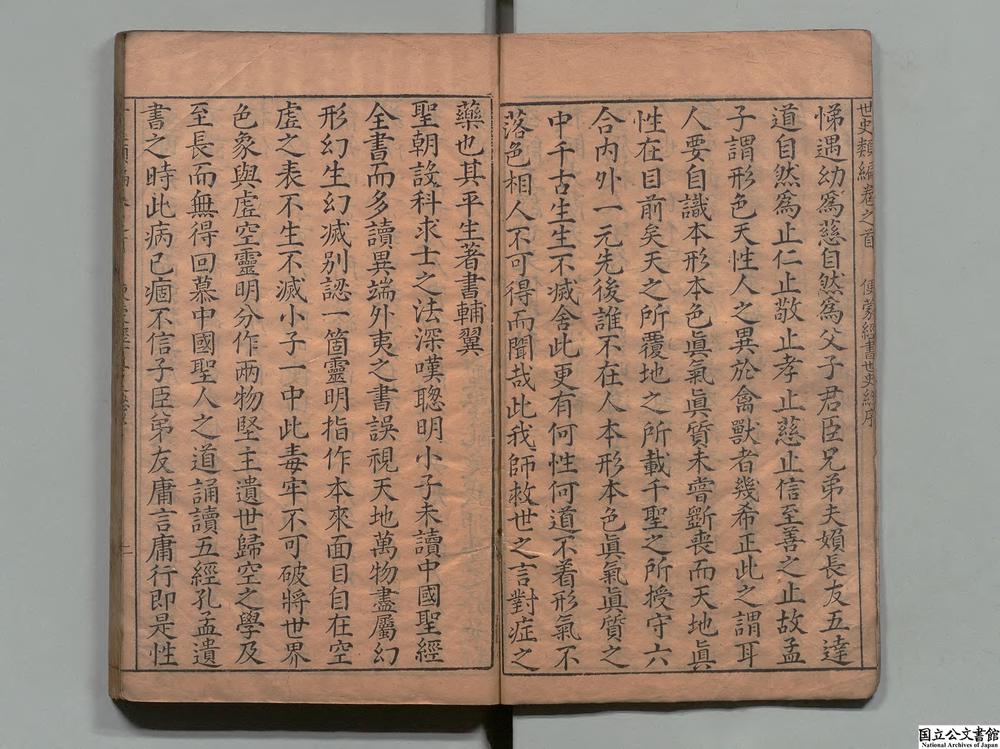 世史類編卷之首 便蒙經書世史總序
悌遇幼爲慈自然爲父子君臣兄弟夫婦長友五達
道自然爲止仁止敬止孝止慈止信至善之止故孟
子謂形色天性人之異於禽獸者幾希正此之謂耳
人要自識本形本色眞氣眞質未嘗斲喪而天地眞
性在目前矣天之所覆地之所載千聖之所授守六
合內外一元先後誰不在人本形本色眞氣眞質之
中千古生生不滅舍此更有何性何道不着形氣不
落色相人不可得而聞哉此我師救世之言對症之
藥也其平生著書輔翼
聖朝設科求士之法深嘆聰明小子未讀中國聖經
全書而多讀異端外夷之書誤視天地萬物盡屬幻
形幻生幻滅别認一箇靈明指作本來面目自在空
虛之表不生不滅小子一中此毒牢不可破將世界
色象與虛空靈明分作兩物堅主遺世歸空之學及
至長而無得回慕中國聖人之道誦讀五經孔孟遺
書之時此病已痼不信子臣弟友庸言庸行即是性
二
国立公文書館
National Archives of Japan